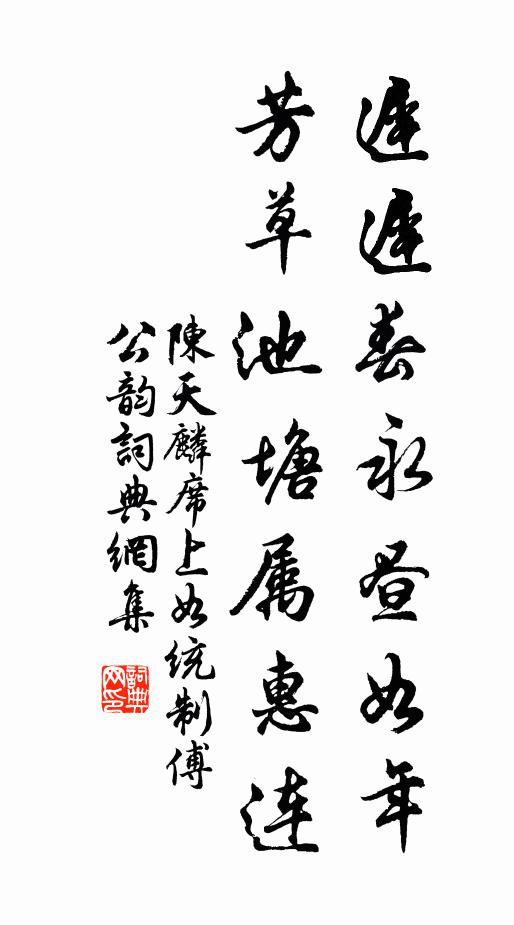 遲遲春永昼如年
芳草池塘属惠連
陳天麟席上如統制傅
公韵詞典網集
詞典
网印